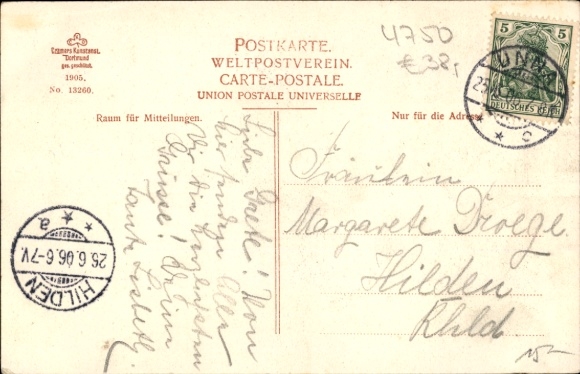 Cramers Kunstanst.
Dortmund
ges. geschützt.
1905.
No. 13260.
POSTKARTE.
WELTPOSTVEREIN.
CARTE-POSTALE.
UNION POSTALE UNIVERSELLE
4750
€38,
5
DEUTSCHES REICH
UNNA
25
* c
Raum für Mitteilungen.
Nur für die Adresse
Liebe Grete! Von
hier senden Alle
Dir die herzlichsten
Grüsse! Deine
Tante
Fräulein
Margarete Droege
Hilden
Rhld
* * a
26.6.06.6-7V.
HILDEN
15-